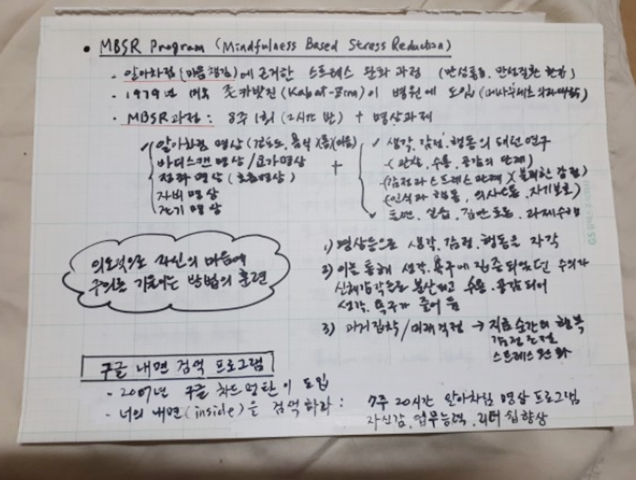 • MBSR Program (Mindfulness Based Stress Reduction)
- 알아차림(마음챙김)에 근거한 스트레스 완화 과정 (만성통증, 만성질환 환자)
- 1979년 미국 존카밧진(Kabat-Zinn)이 병원에 도입 (매사추세츠 의과대학)
- MBSR과정 : 8주 1회(2시간 반) + 명상과제
알아차림 명상(건포도, 음식
바디스캔 명상/요가명상
정좌 명상 (호흡명상)
자비 명상
걷기 명상
+
생각, 감정, 행동의 패턴연구
(관찰, 수용, 공감의 단계)
(감정과 스트레스 관계)(불쾌한 감정)
(인식과 행동, 의사소통, 자기보호)
토론, 실습, 집단토론, 과제수행
의도적으로 자신의 마음에
주의를 기울이는 방법의 훈련
1) 명상등으로 생각, 감정, 행동을 자각
2) 이를 통해 생각, 욕구에 집중되었던 주의가
신체감각으로 분산되고 수용, 공감되어
생각, 욕구가 줄어 듬
3) 과거집착/미래걱정 → 지금순간의 행복
감정조절
스트레스 완화
구글 내면 검색 프로그램
- 2007년 구글 차드 멍탄이 도입
- 너의 내면(inside)을 검색하라 : 7주 20시간 알아차림 명상 프로그램
자신감, 업무능력, 리더십향상